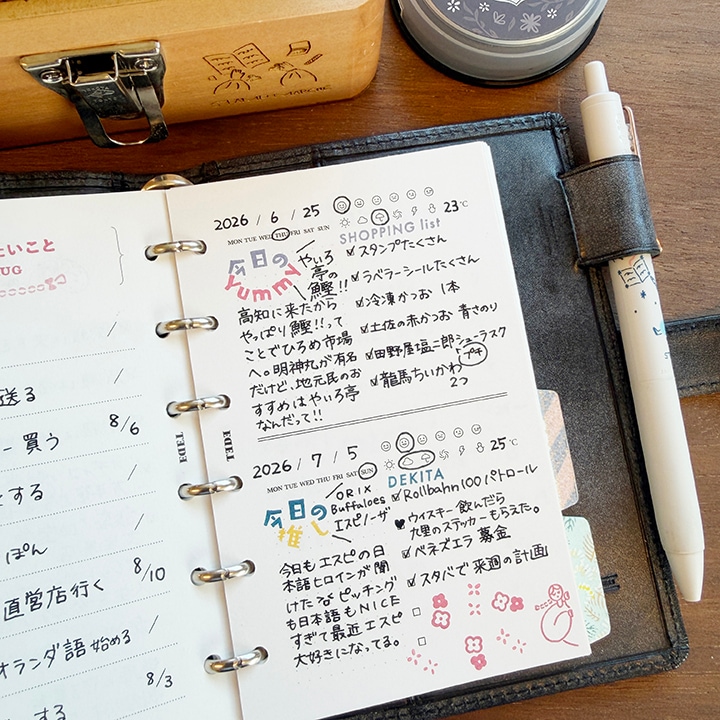 たいこと
UG
送る
/
ー買う
8/6
とする
/
ぽん
/
直営店行く
8/10
オランダ語 始める
/
する
8/3
TEDE
TEDE
2026 / 6 / 25
23℃
MON TUE WED THU FRI SAT SUN
今日の
Yummy
やいろ
亭の
鰹!!
高知に来たから
やっぱり鰹!!って
ことでひろめ市場
へ。明神丸が有名
だけど、地元民のお
すすめはやいろ亭
なんだって!!
SHOPPING list
スタンプたくさん
ラベラーシールたくさん
冷凍かつお 1本
土佐の赤かつお 青さのり
田野屋塩二郎シューラスク
プチ
龍馬ちいかわ
2つ
2026 / 7 / 5
25℃
MON TUE WED THU FRI SAT SUN
今日の
推し
ORIX
Buffaloes
エスピノーザ
今日もエスピの日
本語ヒロインが聞
けた ピッチング
も日本語もNICE
すぎて最近エスピ
大好きになってる。
DEKITA
Rollbahn100パトロール
ウイスキー飲んだら
九里のステッカーもらえた。
ベネズエラ募金
スタバで来週の計画